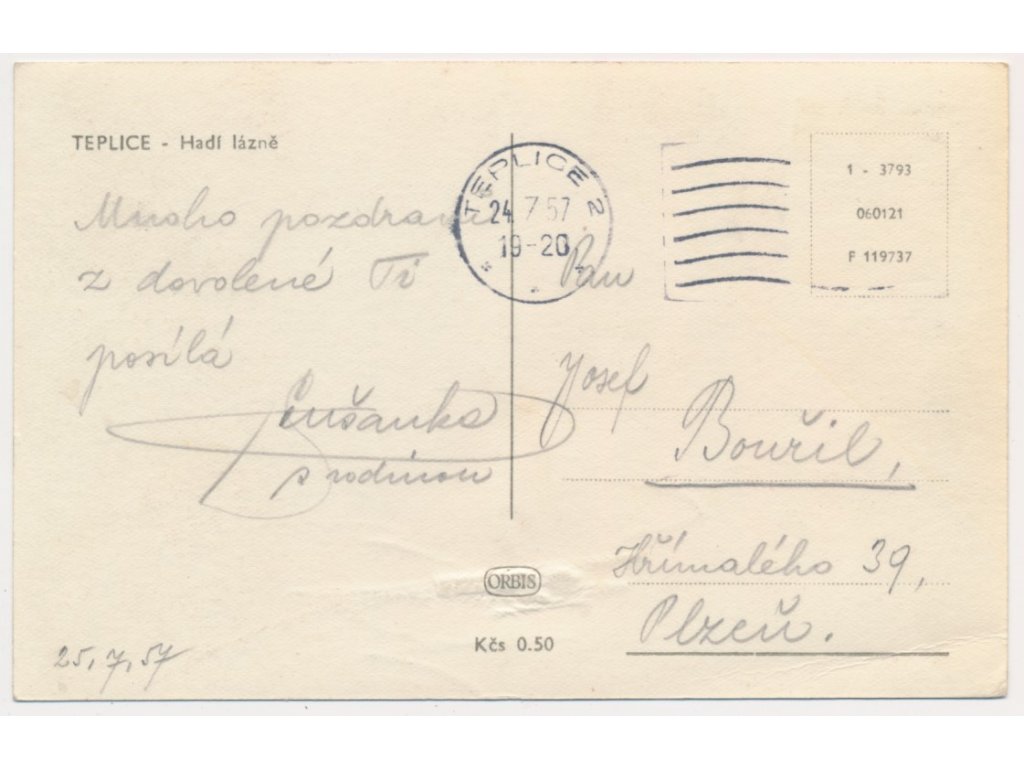 TEPLICE - Hadí lázně
Mnoho pozdravů
z dovolené Ti
posílá
s rodinou
25.7.57
TEPLICE 2
24.7.57
19-20
1 - 3793
060121
F 119737
Pan
Josef
Bouřil,
Hřímalého 39,
Plzeň.
ORBIS
Kčs 0.50